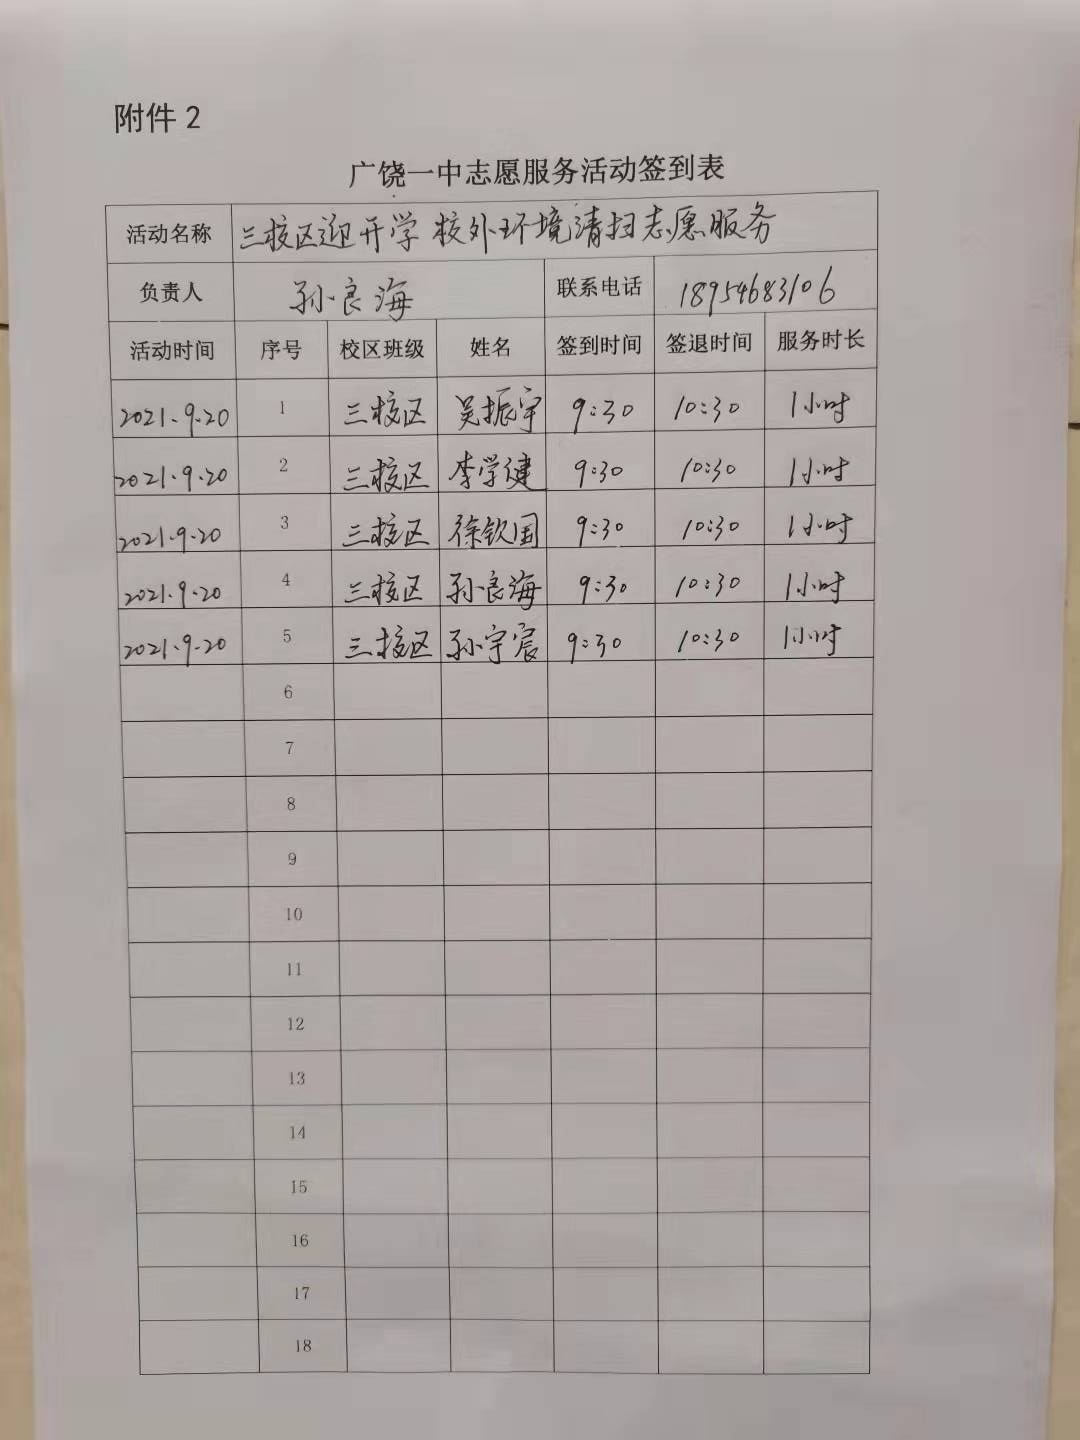 附件 2
广饶一中志愿服务活动签到表
活动名称 三校区迎开学校外环境清扫志愿服务
负责人 孙良海 联系电话 18954683106
活动时间 序号 校区班级 姓名 签到时间 签退时间 服务时长
2021.9.20 1 三校区 吴振宇 9:30 10:30 1小时
2021.9.20 2 三校区 李学健 9:30 10:30 1小时
2021.9.20 3 三校区 徐钦国 9:30 10:30 1小时
2021.9.20 4 三校区 孙良海 9:30 10:30 1小时
2021.9.20 5 三校区 孙宇宸 9:30 10:30 1小时
6
7
8
9
10
11
12
13
14
15
16
17
18